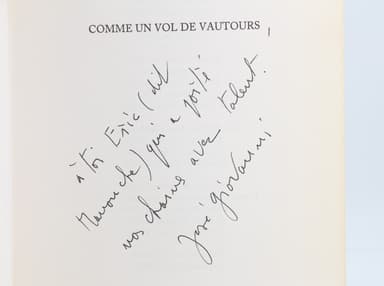 COMME UN VOL DE VAUTOURS
à toi Eric (dit
Mavouche) qui a porté
nos chaines avec talent.
José Giovanni